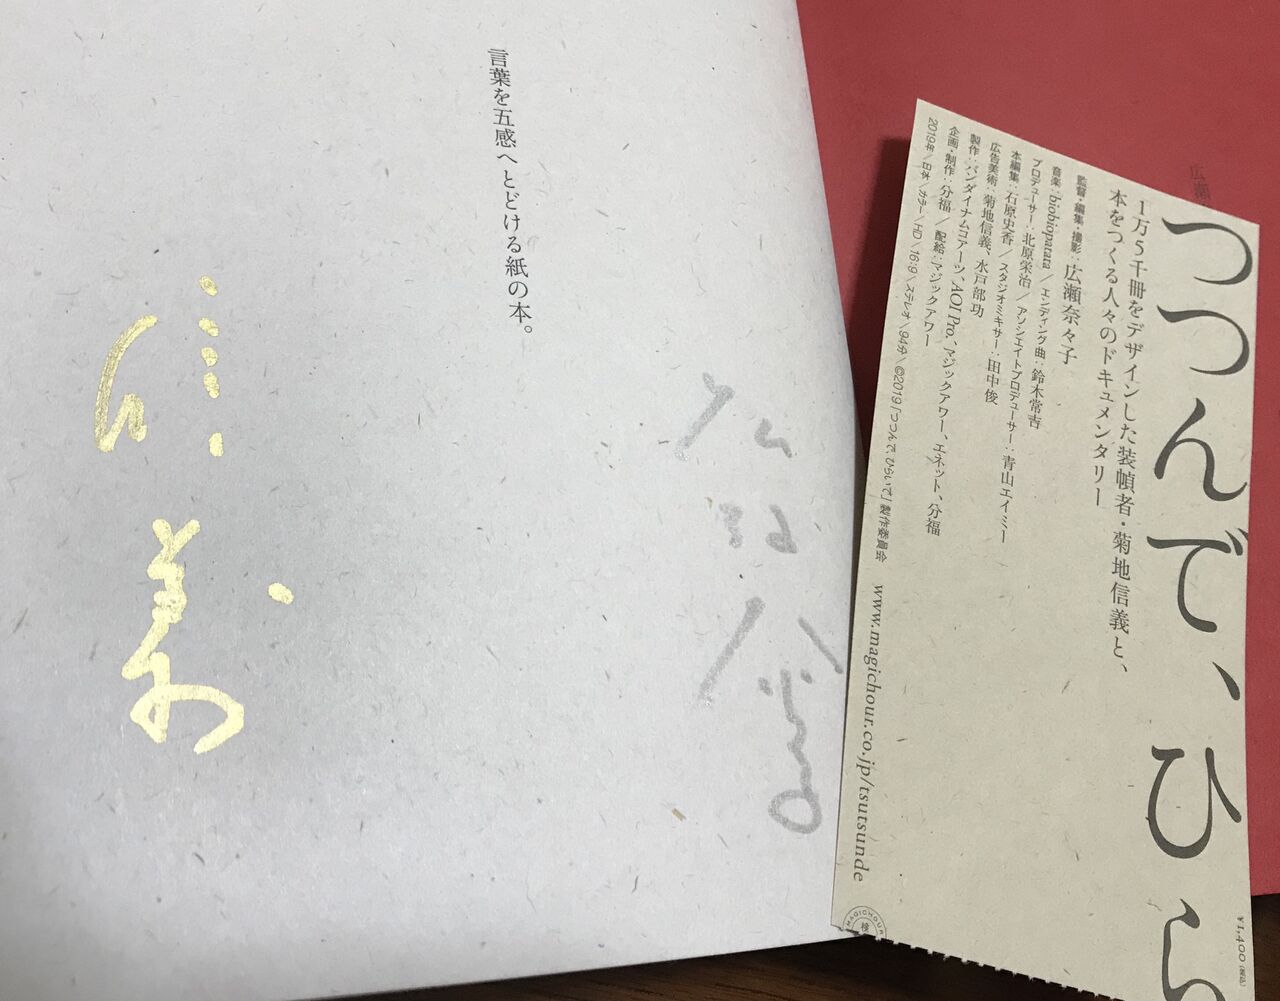 言葉を五感へとどける紙の本。
信義
広瀬
つつんで、ひら
1万5千冊をデザインした装幀者・菊地信義と、
本をつくる人々のドキュメンタリー
監督・編集・撮影：広瀬奈々子
音楽：biobiopatata / エンディング曲：鈴木常吉
プロデューサー：北原栄治 / アソシエイトプロデューサー：青山エイミー
本編集：石原史香 / スタジオミキサー：田中俊
広告美術：菊地信義、水戸部功
製作：バンダイナムコアーツ、AOI Pro.、マジックアワー、エネット、分福
企画・制作：分福 / 配給：マジックアワー
2019年 / 日本 / カラー / HD / 16:9 / ステレオ / 94分 / ©2019「つつんで、ひらいて」製作委員会
www.magichour.co.jp/tsutsunde
¥1,400（税込）
MAGICHOUR
検